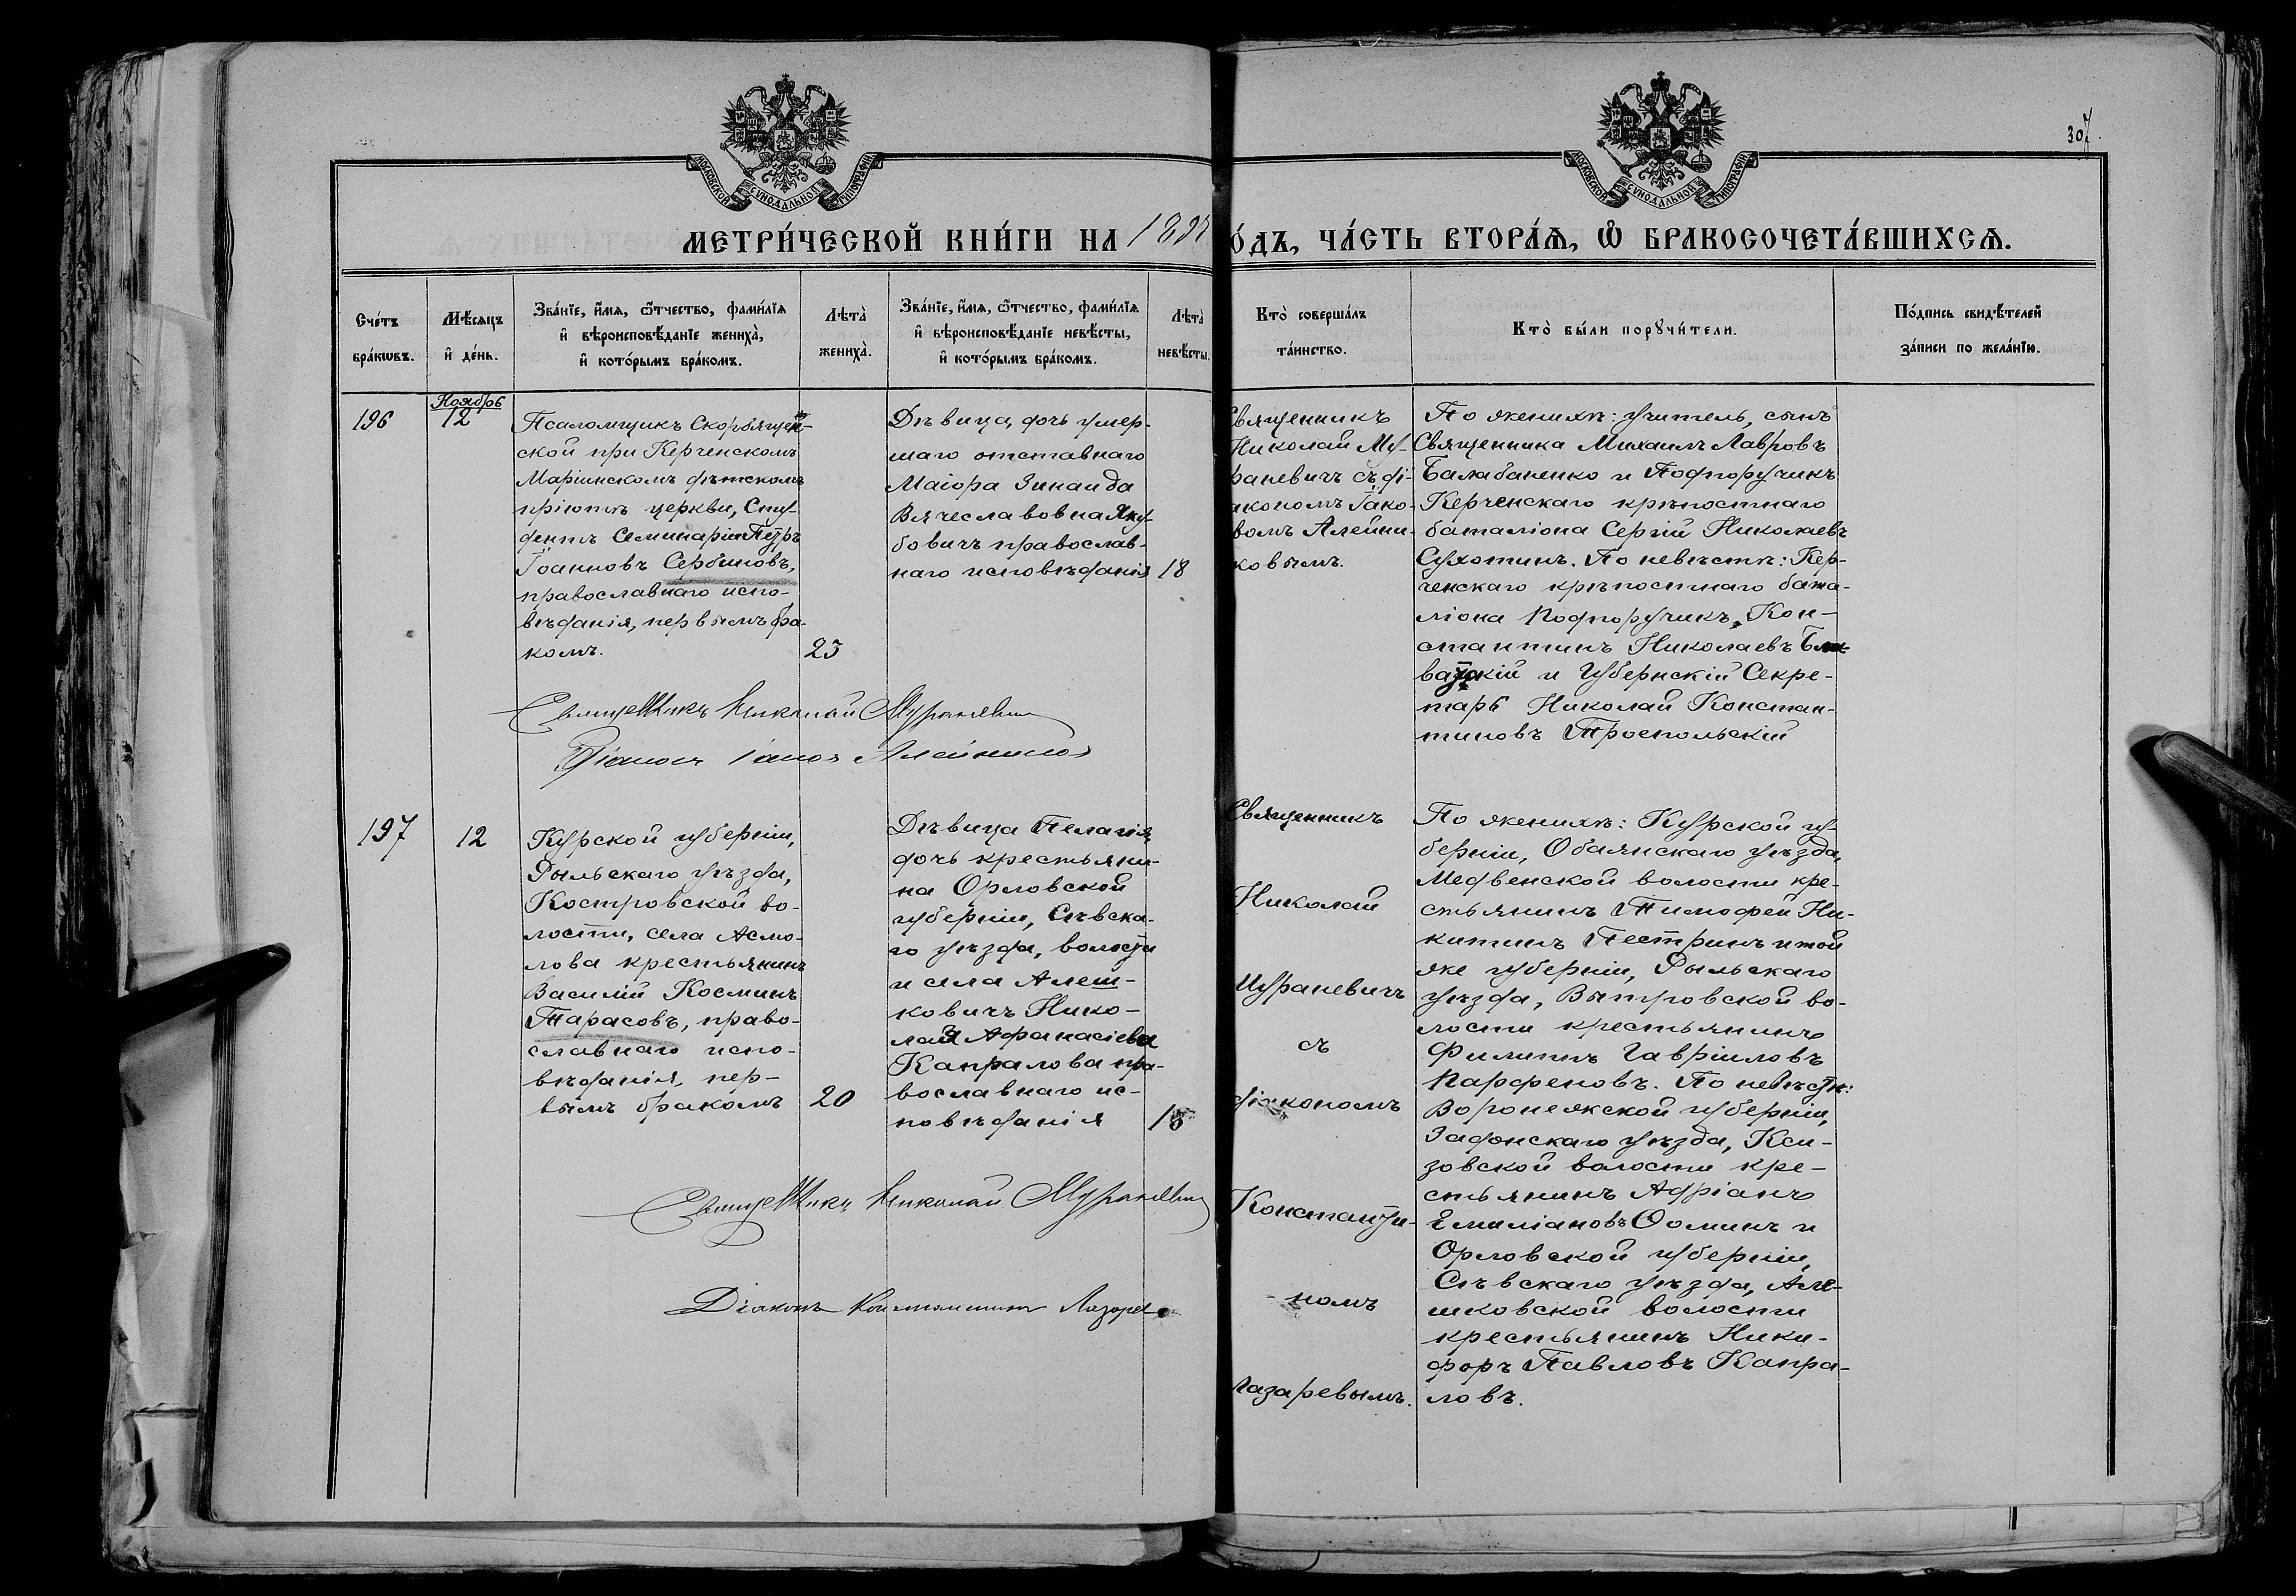 307
МОСКОВСКОЙ СУНОДАЛЬНОЙ ТИПОГРАФІИ
МОСКОВСКОЙ СУНОДАЛЬНОЙ ТИПОГРАФІИ
МЕТРИ́ЧЕСКОЙ КНИ́ГИ НА
О́ДЪ, ЧА́СТЬ ВТОРА́Ѧ, Ѡ҆ БРАКОСОЧЕТА́ВШИХСѦ.
Сче́тъ бра́кѡвъ.
Мѣ́сяцъ и҆ де́нь.
Зва́нїе, и҆́мѧ, ѻ҆́тчество, фами́лїѧ
и҆ вѣроисповѣ́данїе жениха̀,
и҆ кото́рымъ бра́комъ.
Лѣта̀ жениха̀.
Зва́нїе, и҆́мѧ, ѻ҆́тчество, фами́лїѧ
и҆ вѣроисповѣ́данїе невѣ́сты,
и҆ кото́рымъ бра́комъ.
Лѣта̀ невѣ́сты.
Кто̀ соверша́лъ та́инство.
Кто̀ бы́ли порꙋчи́тели.
По́дпись свидѣ́телей за́писи по жела́нїю.
196
Ноябрь
12
Псаломщикъ Скорбящен-
ской при Керченскомъ
Маріинскомъ дѣтскомъ
пріютѣ церкви, Сту-
дентъ Семинаріи Петръ
Іоанновъ Сербиновъ,
православнаго испо-
вѣданія, первымъ бра-
комъ.
25
Дѣвица, дочь умер-
шаго отставнаго
Маіора Зинаида
Вячеславовна Яку-
бовичъ православ-
наго исповѣданія
18
Священникъ
Николай Му-
раневичъ съ ді-
акономъ Іако-
вомъ Алейни-
ковымъ.
По женихѣ: учитель, сынъ
Священника Михаилъ Лавровъ
Балабаненко и Подпоручикъ
Керченскаго крѣпостнаго
баталіона Сергій Николаевъ
Сухотинъ. По невѣстѣ: Кер-
ченскаго крѣпостнаго бата-
ліона Подпоручикъ, Кон-
стантинъ Николаевъ
и Губернскій Секре-
тарь Николай Констан-
тиновъ Троспольскій
Священникъ Николай Мураневичъ
Діаконъ Іаковъ Алейниковъ
197
12
Курской губерніи,
Рыльскаго уѣзда,
Костровской во-
лости, села Асмо-
лова крестьянинъ
Василій Косминъ
Тарасовъ, право-
славнаго испо-
вѣданія, пер-
вымъ бракомъ
20
Дѣвица Пелагія,
дочь крестьяни-
на Орловской
губерніи, Сѣвска-
го уѣзда, волости
и села Алеш-
ковичъ Нико-
лая Афанасіева
Капралова пра-
вославнаго ис-
повѣданія
Священникъ
Николай
Мураневичъ
съ
діакономъ
Константи-
номъ
Лазаревымъ.
По женихѣ: Курской гу-
берніи, Обаянскаго уѣзда,
Медвенской волости кре-
стьянинъ Тимофей Ни-
китинъ Пестринъ и той
же губерніи, Рыльскаго
уѣзда, Выгровской во-
лости крестьянинъ
Филиппъ Гавріиловъ
Парфеновъ. По невѣстѣ:
Воронежской губерніи,
Задонскаго уѣзда, Кси-
зовской волости кре-
стьянинъ Адріанъ
Емиліановъ Ѳоминъ и
Орловской губерніи,
Сѣвскаго уѣзда, Але-
шковской волости
крестьянинъ Ники-
форъ Павловъ Капра-
ловъ.
Священникъ Николай Мураневичъ
Діаконъ Константинъ Лазарев